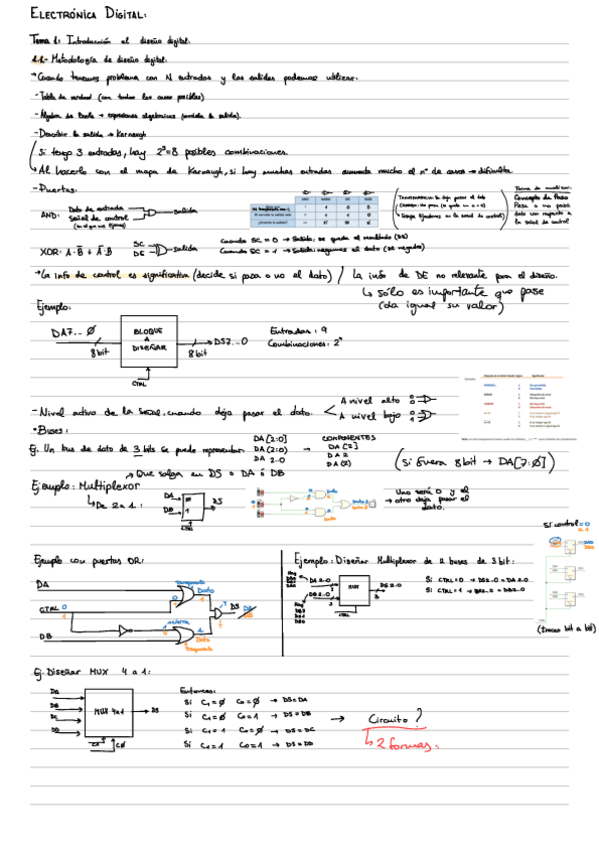 ELECTRÓNICA DIGITAL:
Tema 1: Introducción al diseño digital.
1.1- Metodología de diseño digital:
Cuando tenemos problema con N entradas y las salidas podemos utilizar:
- Tabla de verdad (con todos los casos posibles)
- Álgebra de Boole → expresiones algebraicas
- Describir la salida → Karnaugh
Si tengo 3 entradas, hay 2³=8 posibles combinaciones.
Al hacerlo con el mapa de Karnaugh, si hay muchas entradas aumenta mucho el nº de casos → dificulta
- Puertas:
AND: Dato de entrada
Señal de control
salida
Concepto de Paso
Pasa o no pasa
dato con respecto a
la señal de control
XOR: A·B̅ + A̅·B
SC
DE
salida
Cuando SC = 0 → Salida:
Cuando SC = 1 → Salida: negamos el dato (se negado)
La info de control es significativa (decide si pasa o no el dato) / La info de DE no relevante para el diseño.
↳ sólo es importante que pase
(da igual su valor)
Ejemplo:
DA7..∅
8bit
BLOQUE
A
DISEÑAR
DS7..0
8bit
CTRL
Entradas: 9
Combinaciones: 2⁹
- Nivel activo de la señal, cuando deja pasar el dato.
A nivel alto
A nivel bajo
• Buses:
Ej. Un bus de dato de 3 bits se puede representar:
DA[2:0]
DA(2:0)
DA 2..0
→
COMPONENTES
DA[2]
DA 2
DA(2)
(Si fuera 8bit → DA[7:∅])
Que salga en DS = DA ó DB
Ejemplo: Multiplexor
↳ De 2 a 1:
DA
DB
DS
Uno será 0 y el
otro deja pasar el
dato.
Si control=0
Ejemplo con puertas OR:
DA
CTRL 0
DB
Dato
DS
Ejemplo: Diseñar Multiplexor de 2 buses de 3 bit:
DA 2..0
DB 2..0
MUX
DS 2..0
CTRL
Si CTRL=0 → DS2..0=DA2..0
Si CTRL=1 → DS2..0=DB2..0
(traceo bit a bit)
Ej. Diseñar MUX 4 a 1:
DA
DB
DC
DD
MUX 4a1
DS
C1
C∅
Entonces:
Si C₁=∅ C₀=∅ → DS=DA
Si C₁=∅ C₀=1 → DS=DB
Si C₁=1 C₀=∅ → DS=DC
Si C₁=1 C₀=1 → DS=DD
→ Circuito?
↳ 2 formas: